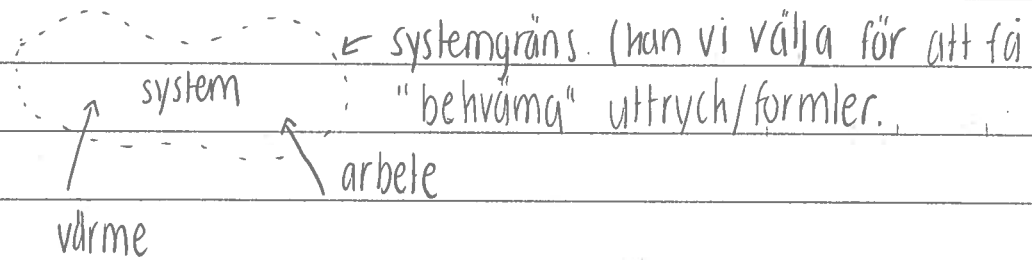 systemgräns. (kan vi välja för att få
system
"bekväma" uttryck/formler.
arbete
värme